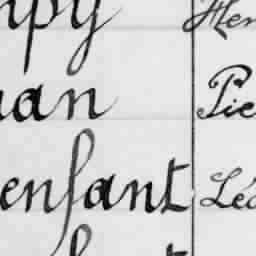 mpy Hen
uan Pie
enfant Léo